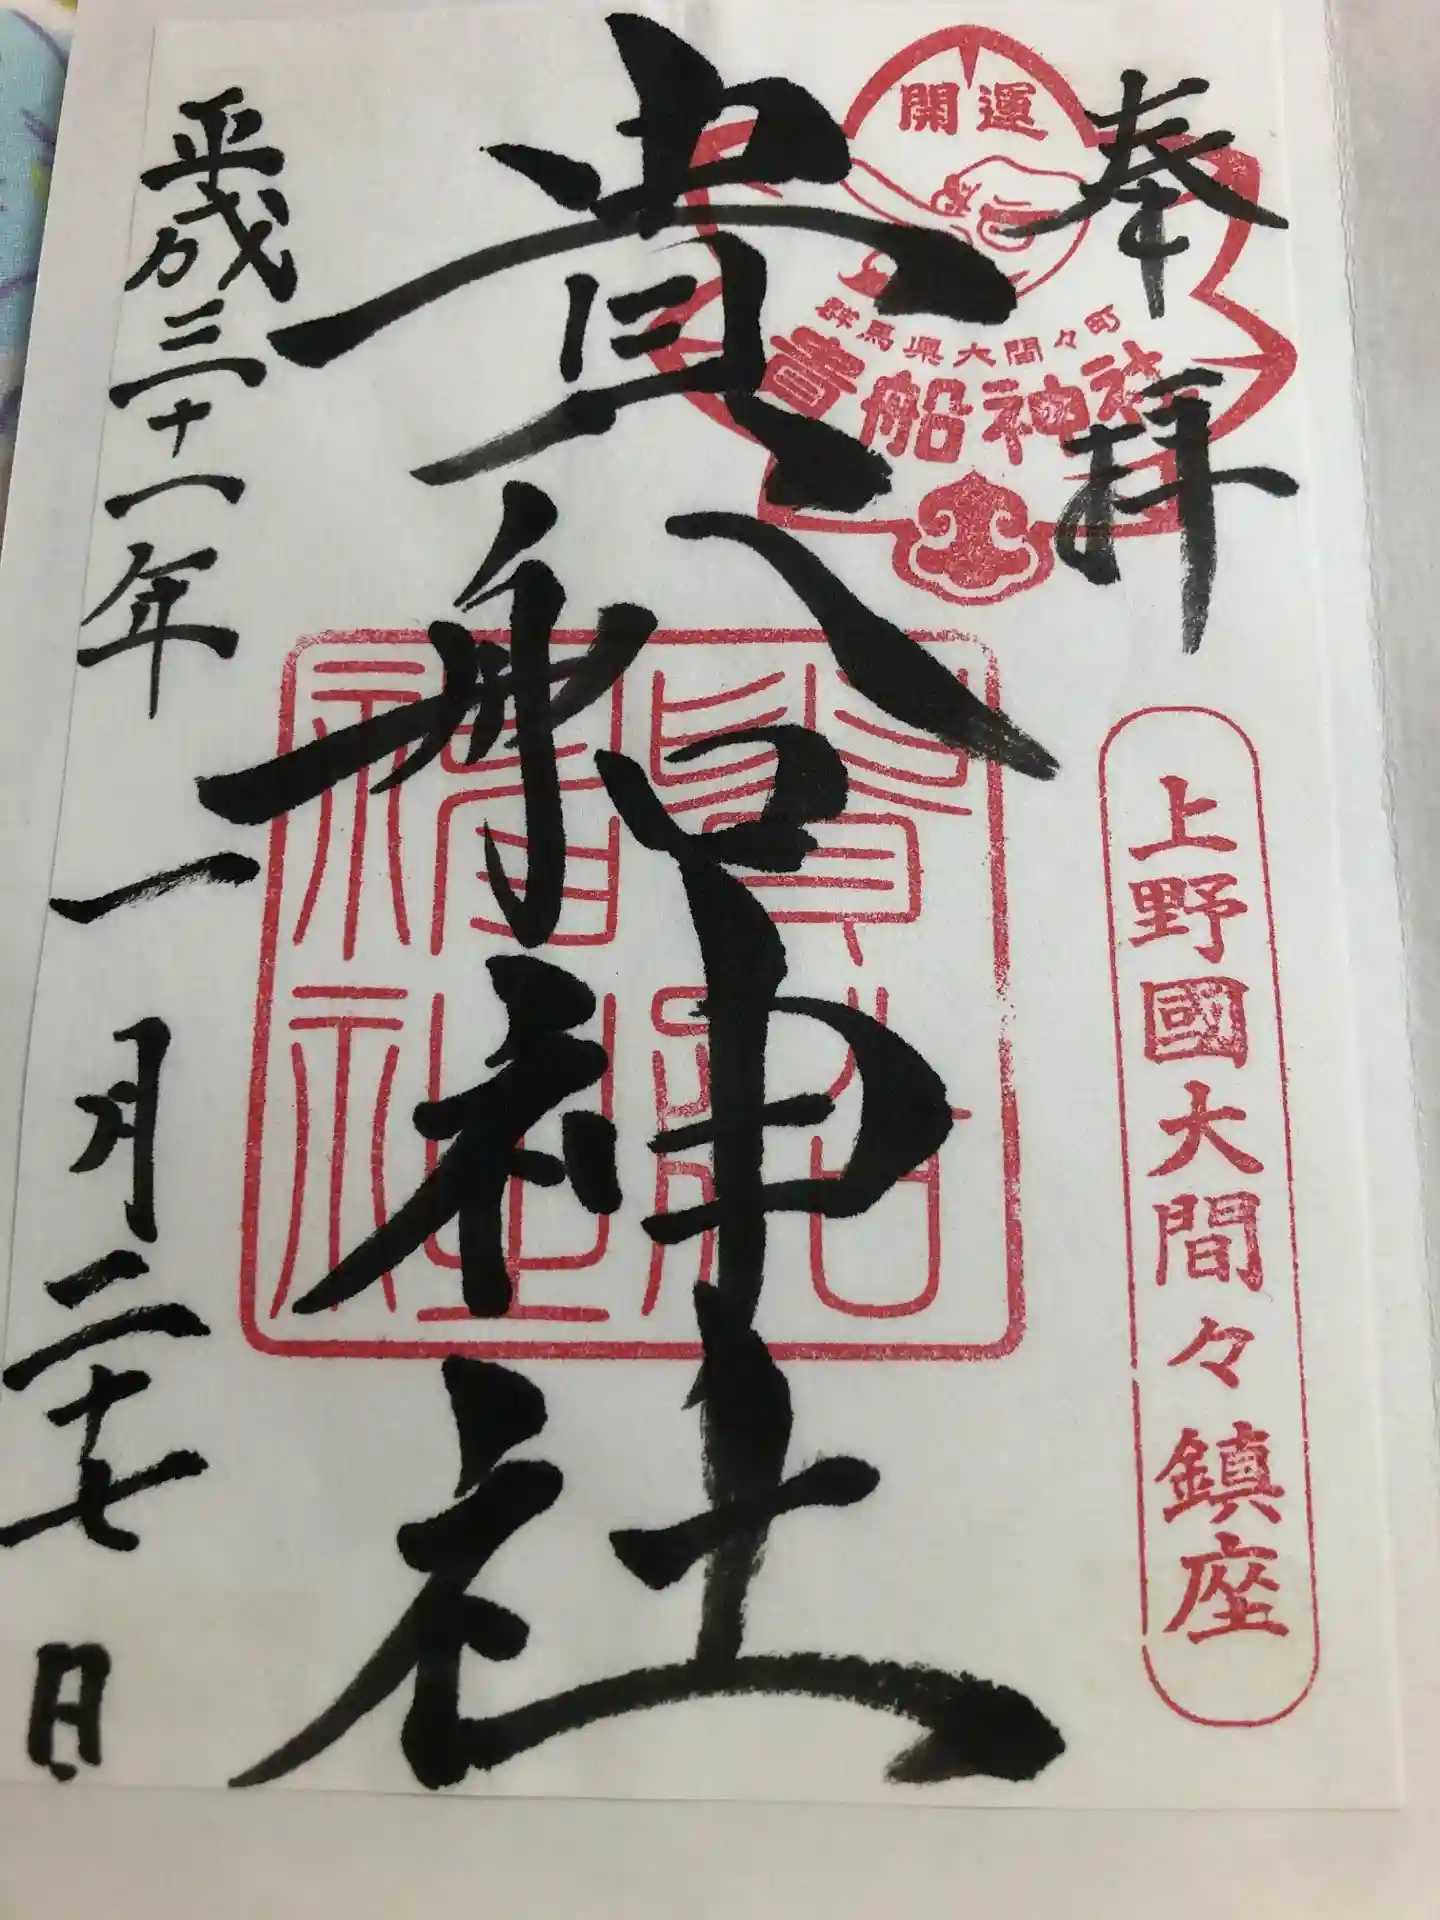 奉拝
開運
群馬県大間々町
貴船神社
上野國大間々鎮座
貴船神社
貴船神社
平成三十一年一月二十七日